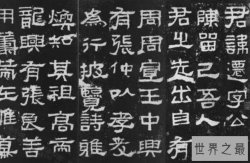 君諱遷字公
陳留己吾人
君之先出自有
周周宣王中興
有張仲以孝友
為行披覽詩雅
煥知其祖高帝
龍興有張良善
用籌策在帷
世界之最